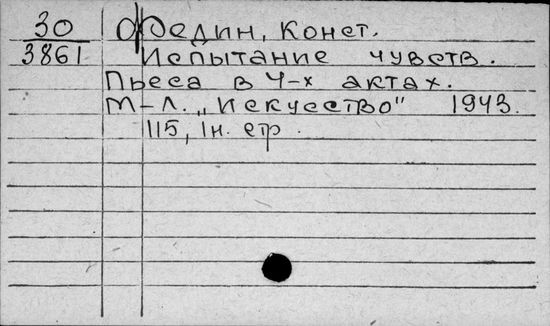 30 Федин, Конст.
3861 Испытание чувств.
Пьеса в 4-х актах.
М-Л. „Искусство" 1943.
115, 1н. стр.